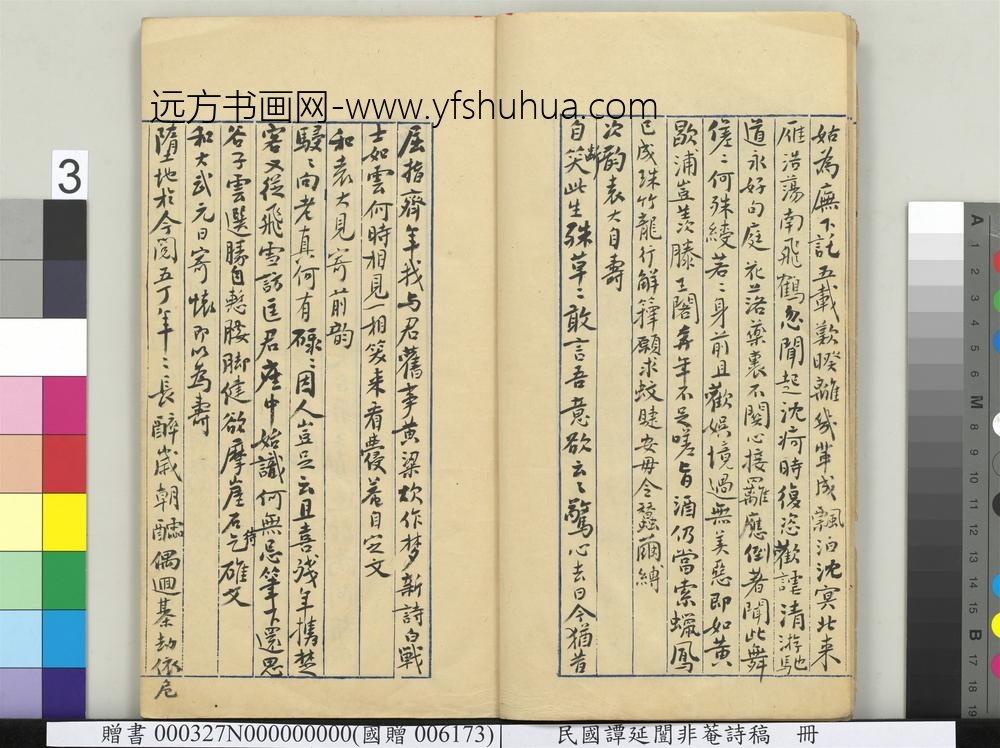 远方书画网-www.yfshuhua.com
姑為廡下託五載歎暌離幾輩成飄泊沈冥北来
雁浩蕩南飛鶴忽聞起沈疴時復恣歡謔清游馳
道永好句庭花落藥裹不關心接䍦應倒著聞此舞
傞〻何殊綾若〻身前且歡娛境過無美惡即如黃
歇浦豈羨滕王閣奔年不足嗟旨酒仍當索蠟鳳
已成珠竹龍行解籜願求蚊睫安毋令蠶繭縛
次韵袁大自壽
自笑此生殊草〻敢言吾意欲云〻驚心去日今猶昔
屈指齊年我与君舊事黃粱炊作夢新詩白戰
士如雲何時相見一相笑来看耋菴自定文
和袁大見寄前韵
駸〻向老真何有碌〻因人豈足云且喜殘年攜楚
客又從飛雪訪匡君座中始識何無忌筆下還思
谷子雲選勝自愁腰脚健欲摩崖石乞碓文
和大武元日寄懷即以為壽
墮地於今閱五丁年〻長醉歲朝醽偶迴棊劫依危
3
贈書 000327N000000000(國贈 006173)
民國譚延闓非菴詩稿 冊
A 1 2 3 4 5 6 M 8 9 10 11 12 13 14 15 B 17 18 19